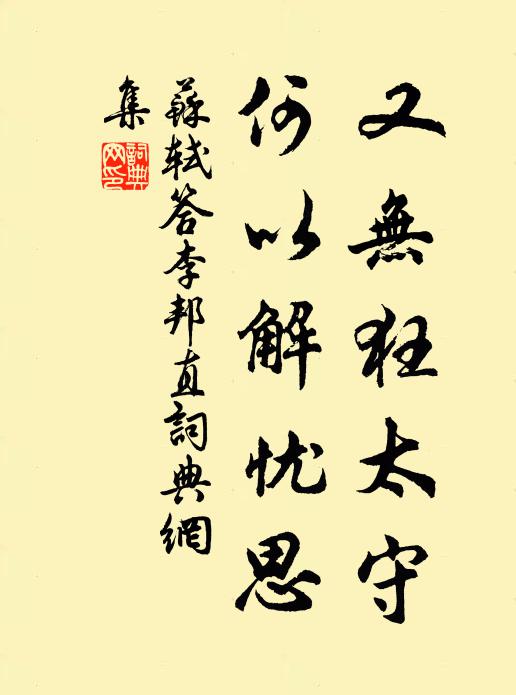 又無狂太守
何以解忧思
蘇軾答李邦直詞典網
集
詞典網印